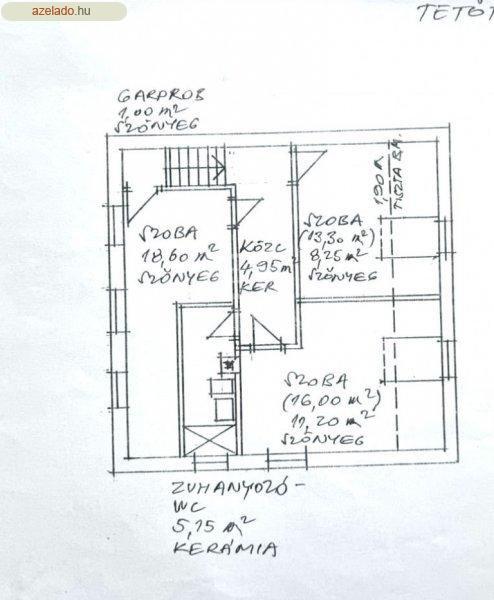 azelado.hu
TETŐT
GARPROB
1,00 m²
SZŐNYEG
SZOBA
18,60 m²
SZŐNYEG
KÖZL
4,95 m²
KER
SZOBA
(13,30 m²)
8,25 m²
SZŐNYEG
1,90 m
TISZTA B.M.
SZOBA
(16,00 m²)
11,20 m²
SZŐNYEG
ZUHANYOZÓ-
WC
5,15 m²
KERÁMIA